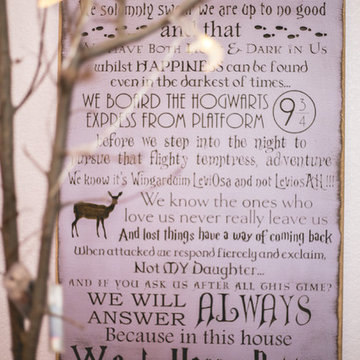 We solemnly swear we are up to no good
and that
We Have Both Light & Dark in Us
whilst HAPPINESS can be found
even in the darkest of times...
WE BOARD THE HOGWARTS
EXPRESS FROM PLATFORM 9 3/4
before we step into the night to
pursue that flighty temptress, adventure
We know it's Wingardium LeviOsa and not LeviosAH!!!
We know the ones who
love us never really leave us
And lost things have a way of coming back
When attacked we respond fiercely and exclaim,
Not MY Daughter...
AND IF YOU ASK US AFTER ALL THIS TIME?
WE WILL ALWAYS
ANSWER
Because in this house
We